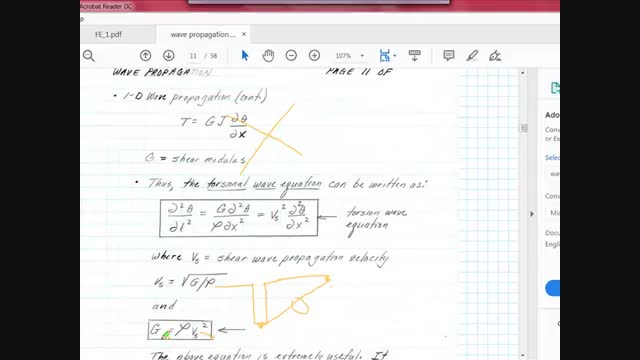 Acrobat Reader DC
p
FE_1.pdf
wave propagation....
×
11 / 58
107%
WAVE PROPAGATION
PAGE 11 OF
• 1-D Wave propagation (cont.)
T = GJ ∂θ/∂x
G = shear modulus
• Thus, the torsional wave equation can be written as:
∂²θ/∂t² = G∂²θ/ρ∂x² = Vs² ∂²θ/∂x² ← torsion wave
equation
where Vs = shear wave propagation velocity
Vs = √G/ρ
and
G = ρVs² ←
The above equation is extremely useful. It
Ado
Con
or E
Sele
wav
Con
Mi
Do